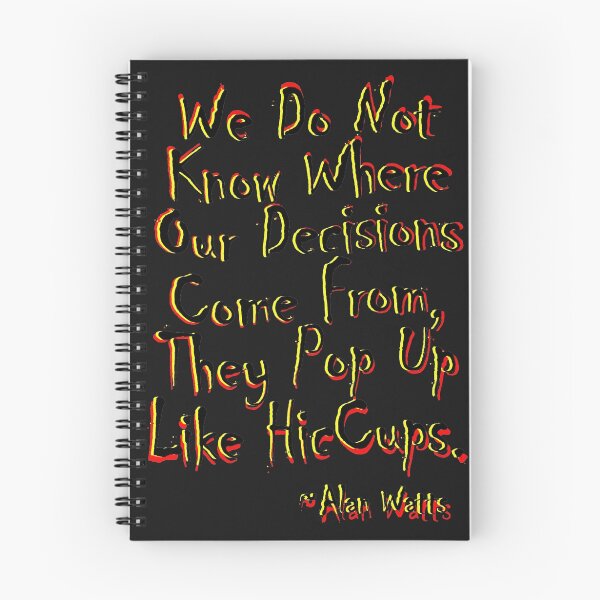 We Do Not
Know Where
Our Decisions
Come From,
They Pop Up
Like HicCups..
~Alan Watts